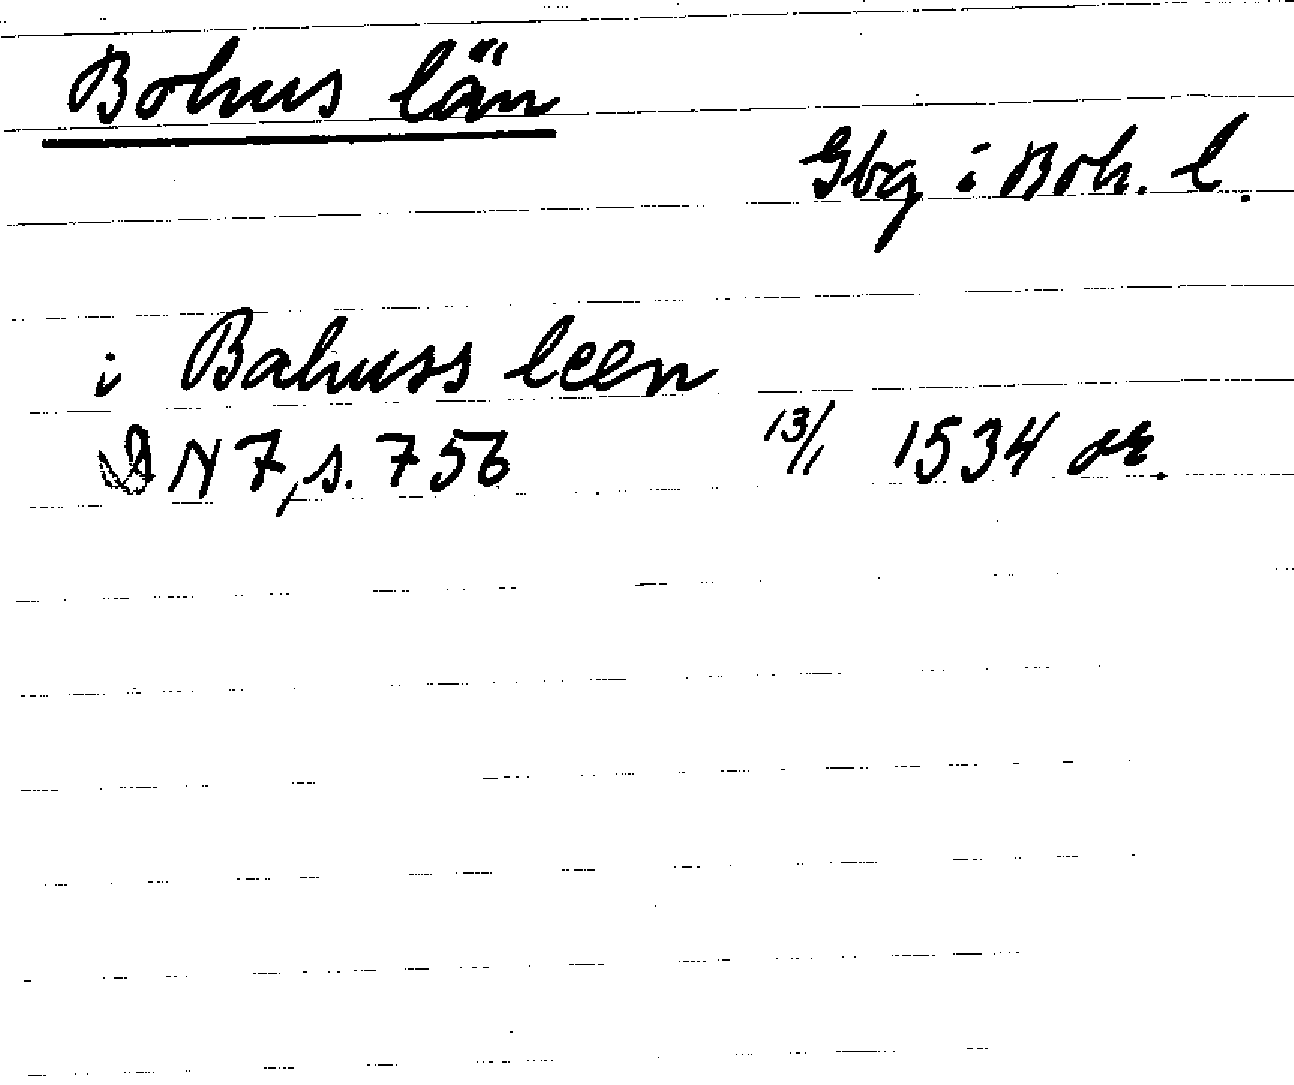 Bohus län
Gbg i Boh. l.
i Bahuss leen
DN 7, s. 756 13/1 1534 or.